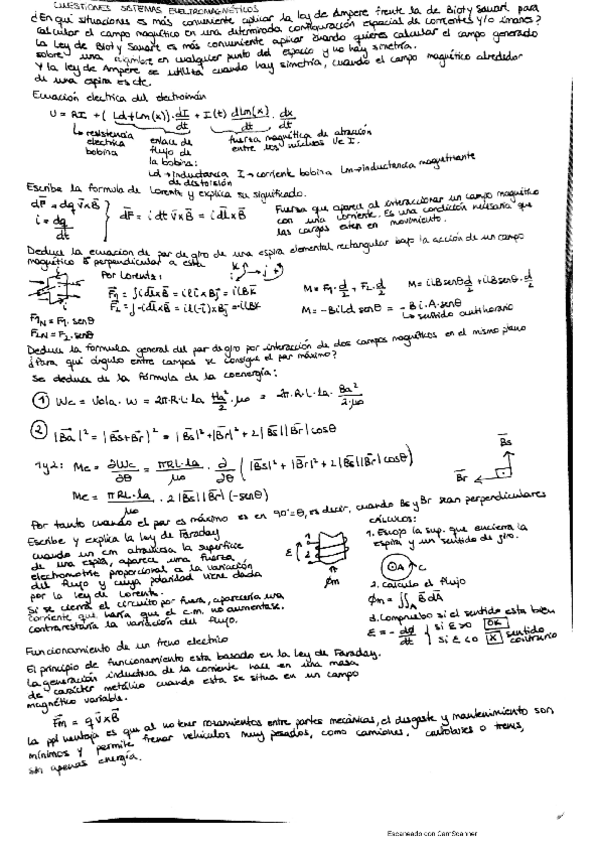 CUESTIONES SISTEMAS ELECTROMAGNÉTICOS
¿En qué situaciones es más conveniente aplicar la ley de Ampere frente la de Biot y Savart para
calcular el campo magnético en una determinada configuración espacial de corrientes y/o imanes?
La ley de Biot y Savart es más conveniente aplicar cuando quieres calcular el campo generado
sobre una en cualquier punto del espacio y no hay simetría.
Y la ley de Ampere se utiliza cuando hay simetría, cuando el campo magnético alrededor
de una espira es cte.
Ecuación electrica del electroimán
U = RI + (Ld + Lm(x)) · dI/dt + I(t) dLm(x)/dx · dx/dt
↳ resistencia electrica bobina
enlace de flujo de la bobina:
fuerza magnética de atracción entre los núcleos U e I.
Ld → inductancia de dispersión I → corriente bobina Lm → inductancia magnetizante
Escribe la formula de Lorentz y explica su significado.
dF = dq v x B
i = dq/dt
dF = i dt v x B = i dl x B
Fuerza que aparece al interaccionar un campo magnético
con una corriente. Es una condición necesaria que
las cargas esten en movimiento.
Deduce la ecuacion de par de giro de una espira elemental rectangular bajo la acción de un campo
magnético B perpendicular a esta
Por Lorentz:
F1 = ∫i dl x B = i l i x B j = i l B k
F2 = ∫-i dl x B = i l (-i) x B j = -i l B k
F1N = F1 · senθ
F2N = F2 · senθ
M = F1 · d/2 + F2 · d/2
M = i l B senθ d/2 + i l B senθ · d/2
M = -B i l d senθ = -B i · A · senθ
↳ sentido antihorario
Deduce la formula general del par de giro por interacción de dos campos magnéticos en el mismo plano
¿Para qué ángulo entre campos se consigue el par máximo?
Se deduce de la fórmula de la coenergía:
① Wc = Vola · w = 2π·R·L·la Ha²/2 · μo = 2π·R·L·la · Ba²/2·μo
② |Ba|² = |Bs+Br|² = |Bs|² + |Br|² + 2|Bs||Br|cosθ
1y2: Me = ∂Wc/∂θ = πRL·la/μo · ∂/∂θ (|Bs|² + |Br|² + 2|Bs||Br|cosθ)
Bs
Br
Me = πRL·la/μo · 2|Bs||Br|(-senθ)
Por tanto cuando el par es máximo es en 90°=θ, es decir, cuando Bs y Br sean perpendiculares
Escribe y explica la ley de Faraday
cuando un cm atraviesa la superficie
de una espira, aparece una fuerza
electromotriz proporcional a la variación
del flujo y cuya polaridad viene dada
por la ley de Lorentz.
Si se cierra el circuito por fuera, aparecería una
corriente que haría que el c.m. no aumentase.
contrarestaría la variación del flujo.
ε
1
2
φm
cálculos:
1. Escojo la sup. que encierra la
espira y un sentido de giro.
A C
2. Calculo el flujo
φm = ∬A B dA
3. Compruebo si el sentido esta bien
ε = - dφ/dt { si ε>0 OK
si ε<0 X sentido contrario
Funcionamiento de un freno electrico
El principio de funcionamiento esta basado en la ley de Faraday.
La generación inductiva de la corriente nace en una masa
de carácter metálico cuando esta se situa en un campo
magnético variable.
Fm = q v x B
La ppl ventaja es que al no tener rozamientos entre partes mecánicas, el desgaste y mantenimiento son
mínimos y permite frenar vehículos muy pesados, como camiones, autobuses o trenes,
sin apenas energía.
Escaneado con CamScanner